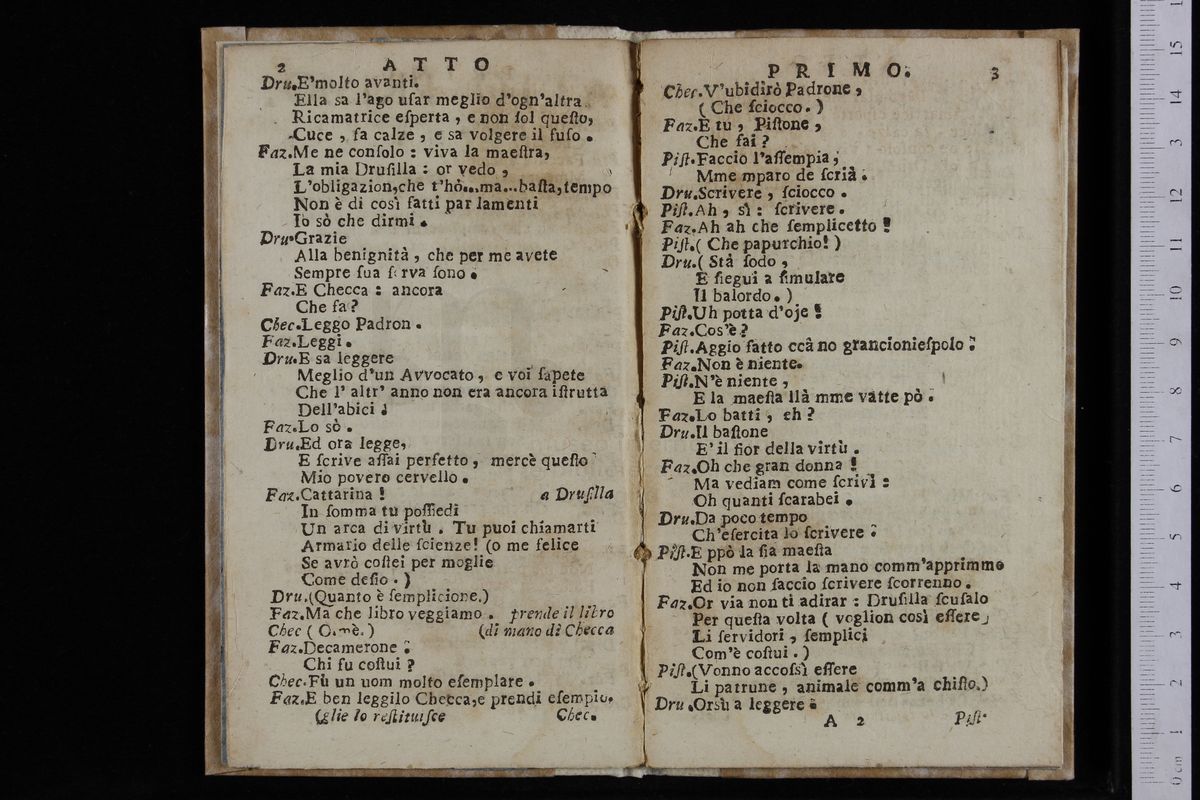 2 ATTO
Dru.E'molto avanti.
Ella sa l'ago uſar meglio d'ogn'altra
Ricamatrice eſperta , e non ſol queſto,
Cuce , fa calze , e sa volgere il fuſo .
Faz.Me ne conſolo : viva la maeſtra,
La mia Druſilla : or vedo ,
L'obligazion,che t'hò...ma...baſta,tempo
Non è di così fatti par lamenti
Io sò che dirmi .
Dru.Grazie
Alla benignità , che per me avete
Sempre ſua ſerva ſono .
Faz.E Checca : ancora
Che fa?
Chec.Leggo Padron .
Faz.Leggi .
Dru.E sa leggere
Meglio d'un Avvocato , e voi ſapete
Che l' altr' anno non era ancora iſtrutta
Dell'abicì
Faz.Lo sò .
Dru.Ed ora legge,
E ſcrive aſſai perfetto , mercè queſto
Mio povero cervello .
Faz.Cattarina ! a Druſilla
In ſomma tu poſſiedi
Un arca di virtù . Tu puoi chiamarti
Armario delle ſcienze! (o me felice
Se avrò coſtei per moglie
Come deſio . )
Dru.(Quanto è ſemplicione.)
Faz.Ma che libro veggiamo . prende il libro
Chec ( Oimè. ) (di mano di Checca
Faz.Decamerone :
Chi fu coſtui ?
Chec.Fù un uom molto eſemplare .
Faz.E ben leggilo Checca,e prendi eſempio.
(glie lo reſtituiſce Chec.
PRIMO. 3
Chec.V'ubidirò Padrone ,
( Che ſciocco . )
Faz.E tu , Piſtone ,
Che fai ?
Piſt.Faccio l'aſſempia ;
Mme mparo de ſcrià .
Dru.Scrivere , ſciocco .
Piſt.Ah , sì : ſcrivere .
Faz.Ah ah che ſemplicetto !
Piſt.( Che papurchio! )
Dru.( Stà ſodo ,
E ſiegui a ſimulare
Il balordo . )
Piſt.Uh potta d'oje !
Faz.Cos'è ?
Piſt.Aggio fatto ccà no grancionieſpolo :
Faz.Non è niente.
Piſt.N'è niente ,
E la maeſta llà mme vatte pò .
Faz.Lo batti , eh ?
Dru.Il baſtone
E' il fior della virtù .
Faz.Oh che gran donna !
Ma vediam come ſcrivi :
Oh quanti ſcarabei .
Dru.Da poco tempo
Ch'eſercita lo ſcrivere :
Piſt.E ppò la ſia maeſta
Non me porta la mano comm'apprimmo
Ed io non ſaccio ſcrivere ſcorrenno .
Faz.Or via non ti adirar : Druſilla ſcuſalo
Per queſta volta ( voglion così eſſere
Li ſervidori , ſemplici
Com'è coſtui . )
Piſt.(Vonno accoſsì eſſere
Li patrune , animale comm'a chiſto.)
Dru.Orsù a leggere :
A 2 Piſt.